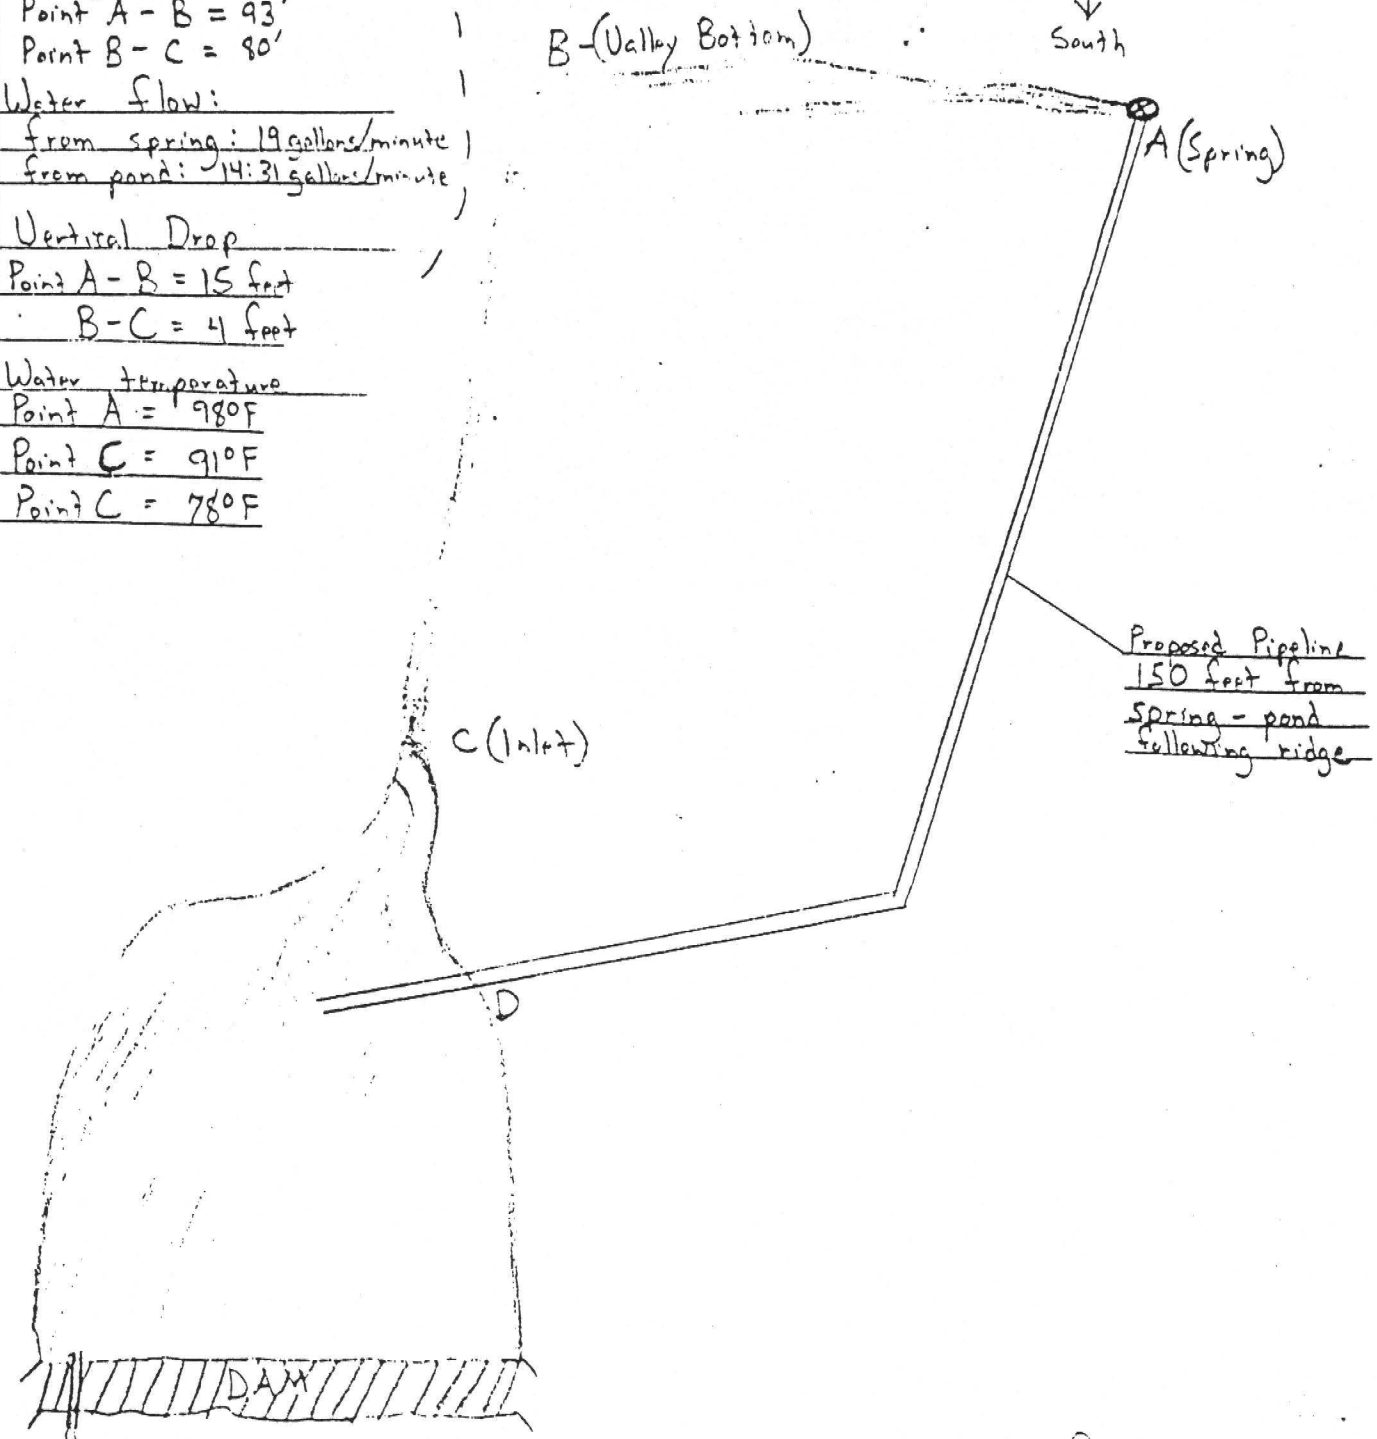 Point A - B = 93'
Point B - C = 80'
Water flow:
from spring: 19 gallons/minute
from pond: 14:31 gallons/minute
Vertical Drop
Point A - B = 15 feet
B - C = 4 feet
Water temperature
Point A = 98°F
Point C = 91°F
Point C = 78°F
B-(Valley Bottom)
South
A (Spring)
Proposed Pipeline
150 feet from
spring - pond
following ridge
C (Inlet)
D
DAM